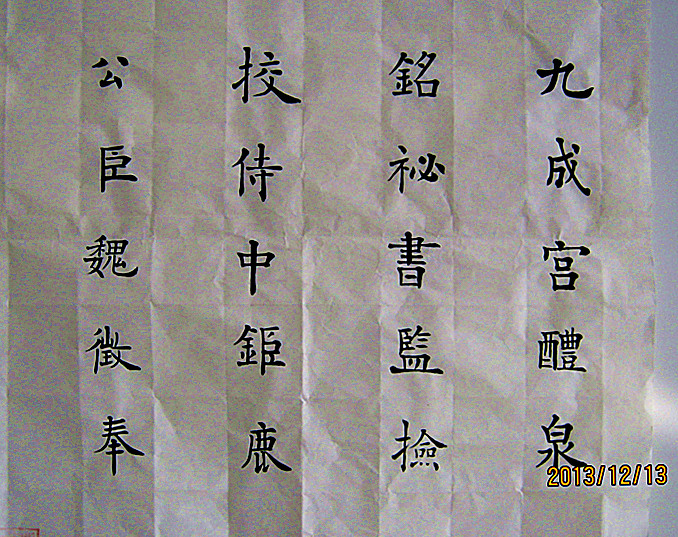 九成宮醴泉
銘祕書監撿
挍侍中鉅鹿
公臣魏徵奉
2013/12/13